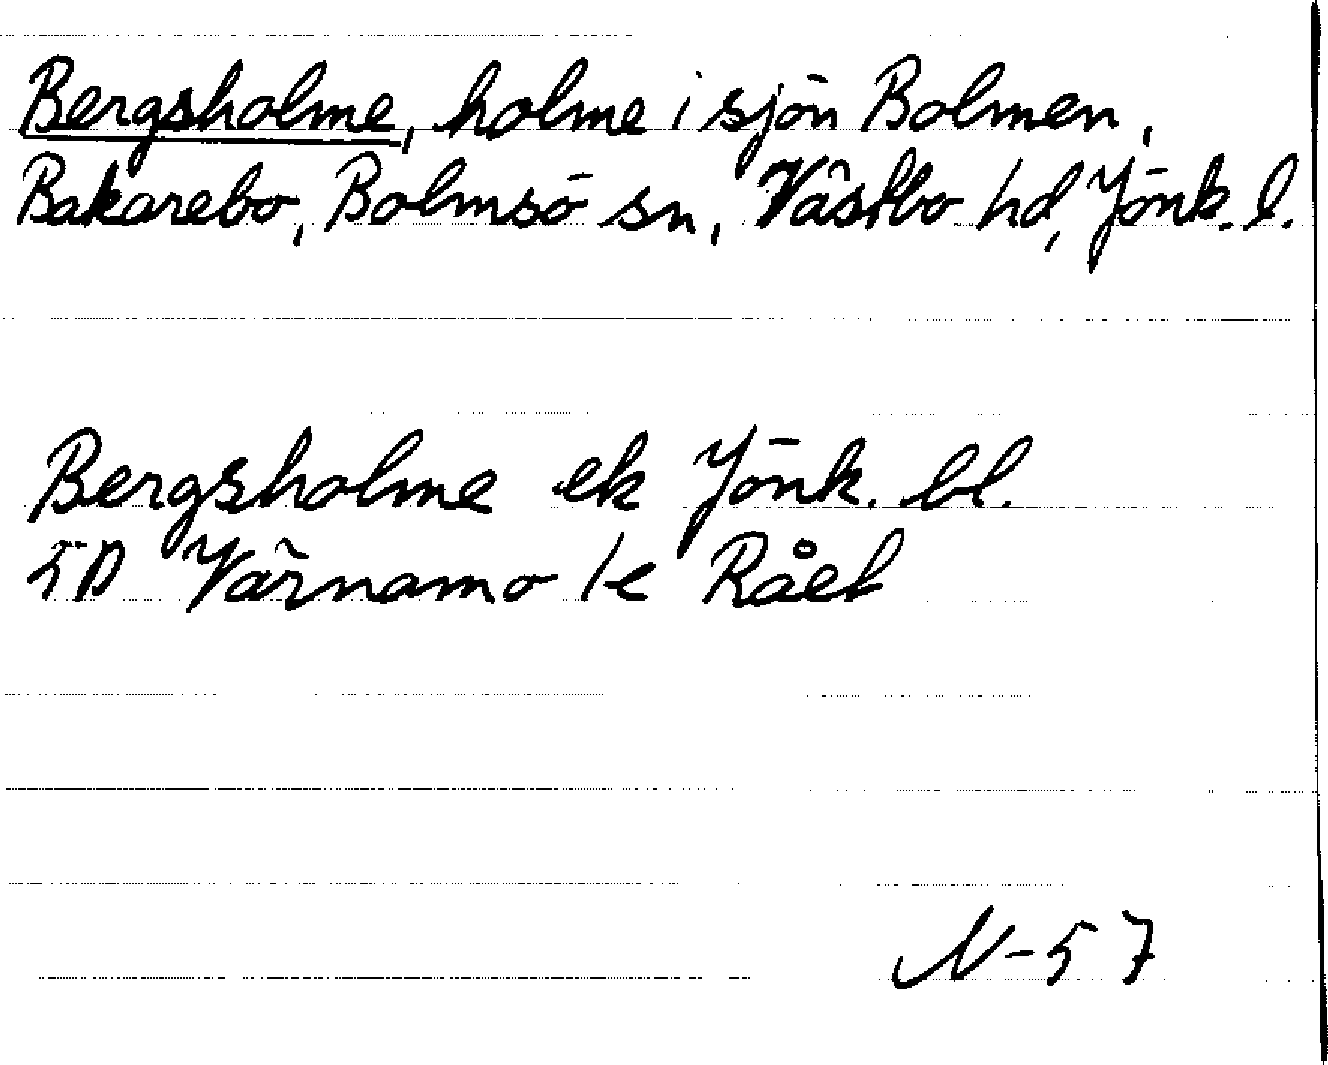 Bergsholme, holme i sjön Bolmen,
Bakarebo, Bolmsö sn, Västbo hd, Jönk. l.
Bergsholme ek Jönk. bl.
5D Värnamo 1e Råel
N-57